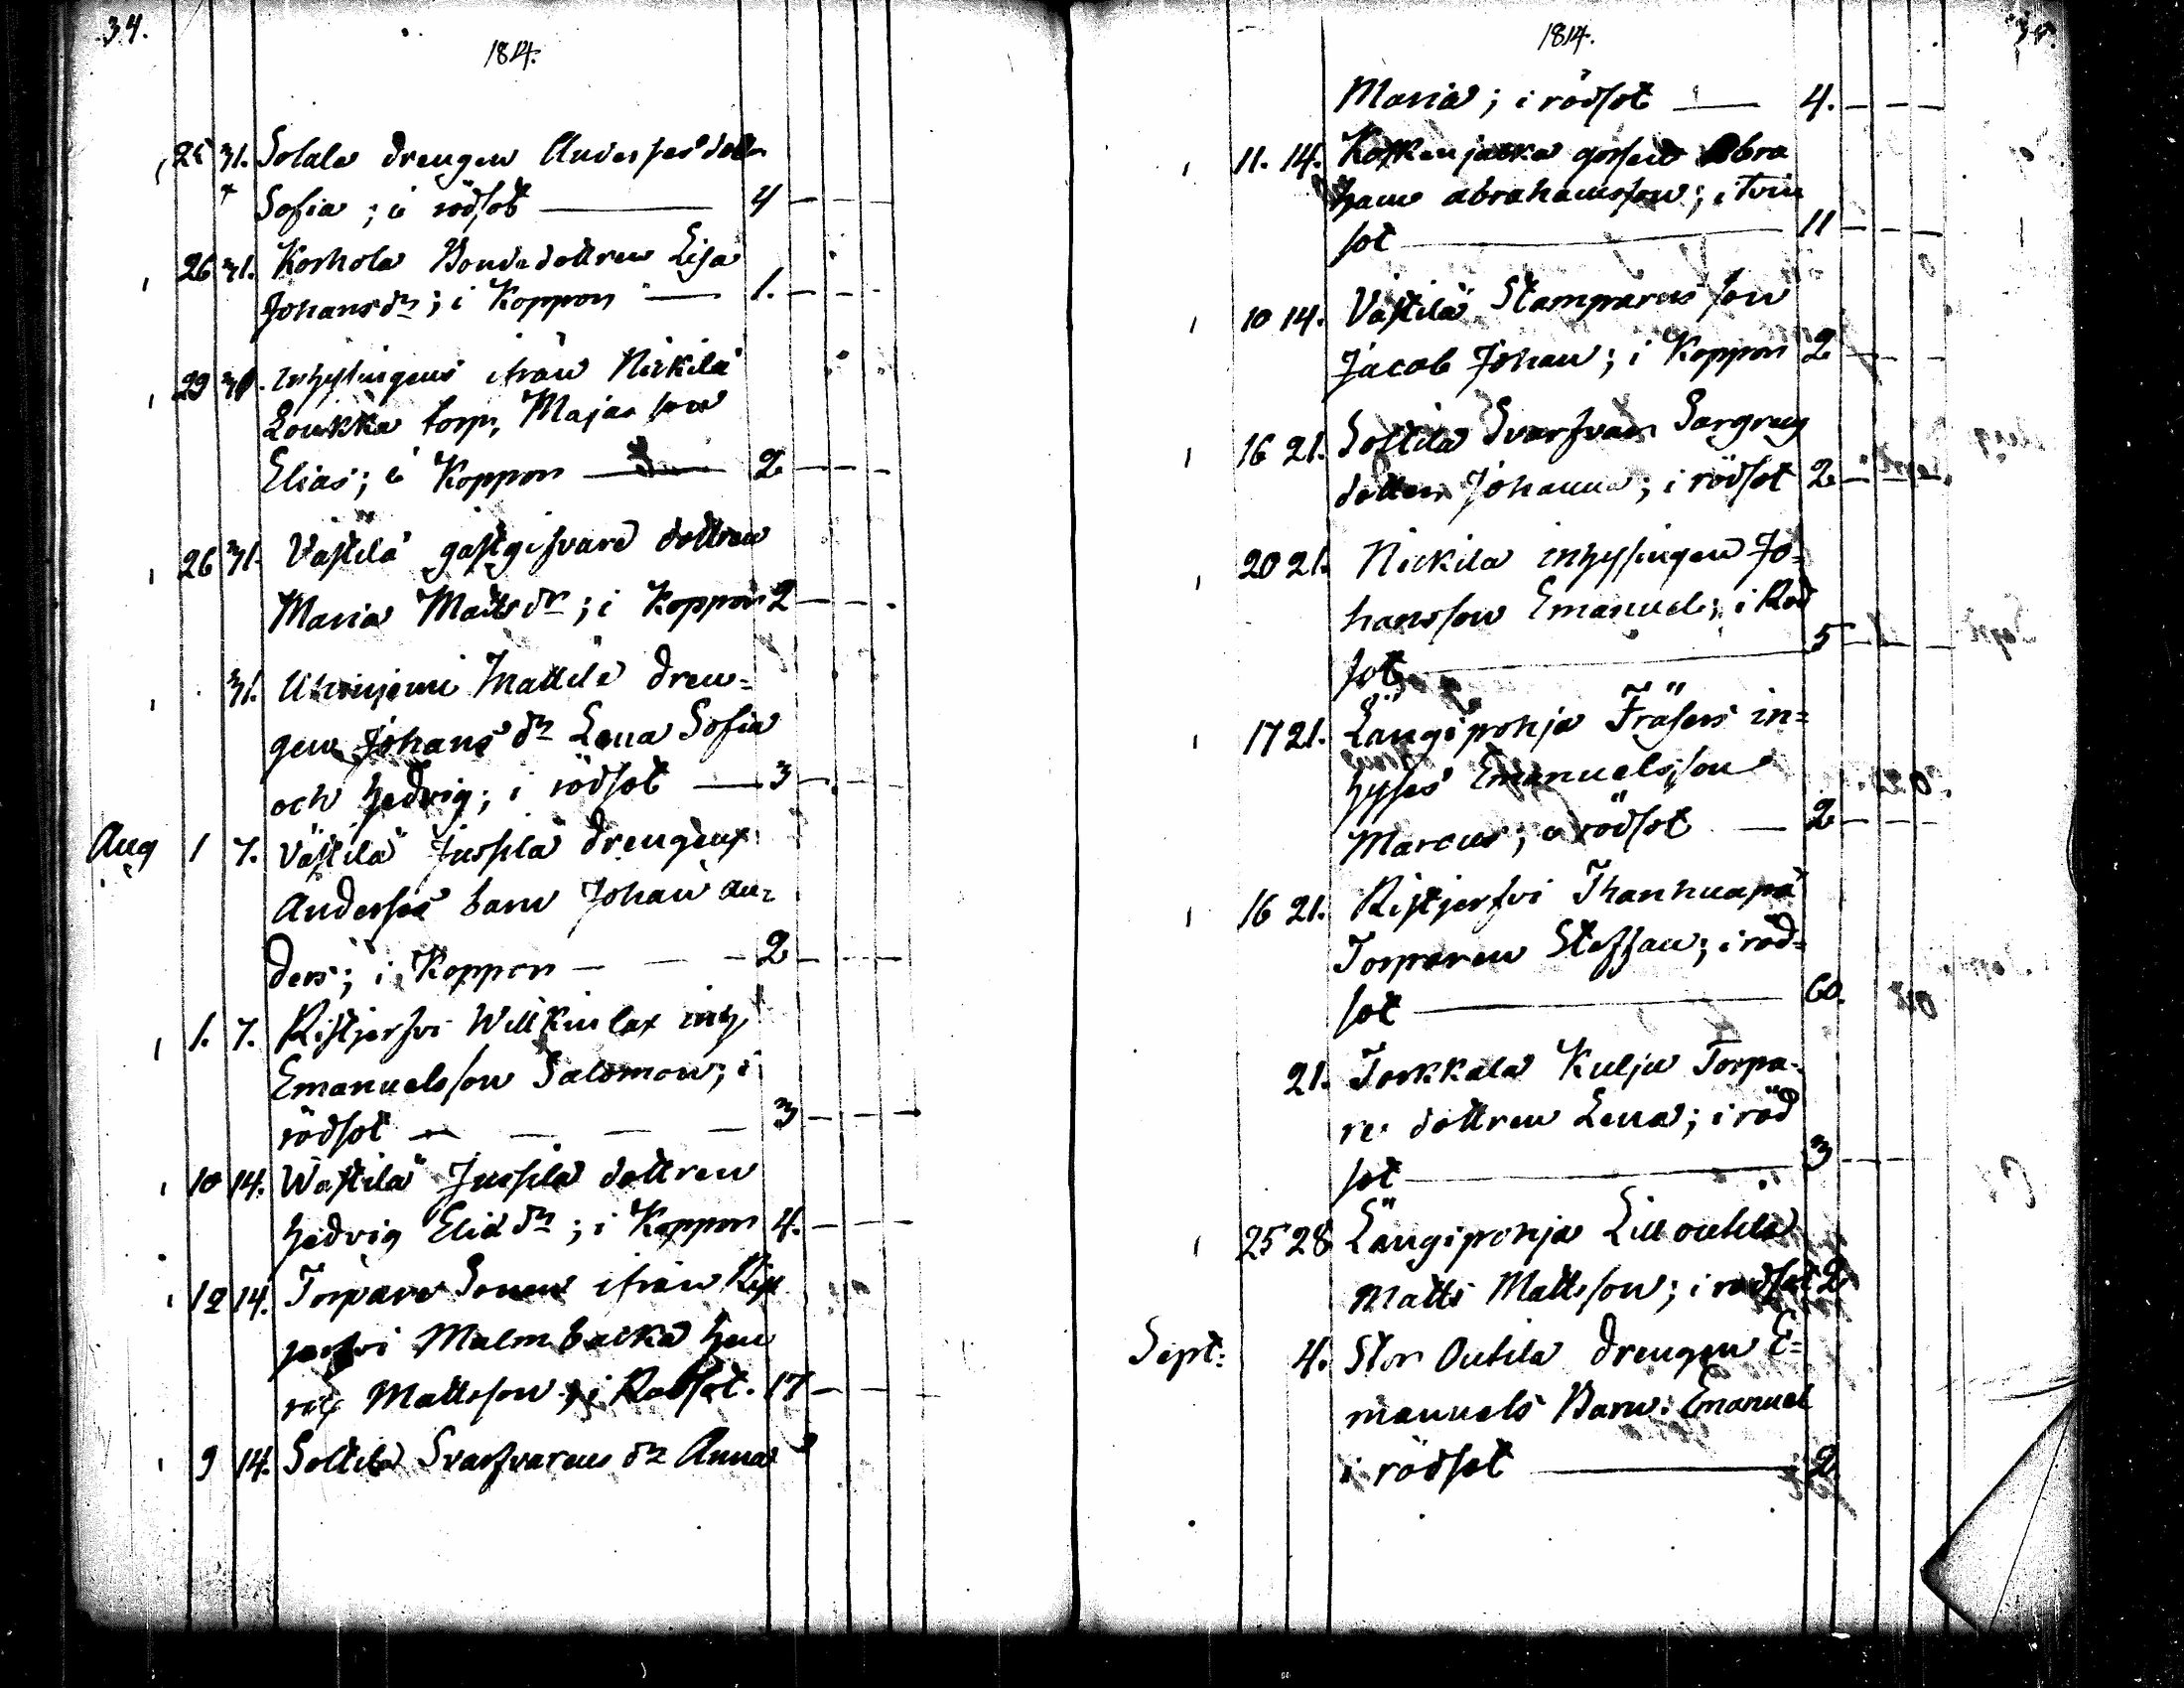 34.
1814.
25 31. Solala drengen Anderses dotter
Sofia; i rödsot 4
26 31. Korhola Bondedottren Lisa
Johansdr; i Koppor 1.
29 31. inhysingens ifrån Nickilä
Loukka torp, Majas son
Elias; i Koppor 2
26 31. Västilä gästgifvare dottren
Maria Mattsdr; i Koppor 2
31. Mattila dren=
gen Johans dr Lena Sofia
och Hedvig; i rödsot 3
Aug 1 7. Västilä Jussila drengens
Anderses barn Johan An=
ders; i Koppor 2
1. 7. Ristjerfvi Willkinlax inh
Emanuelsson Salomon; i
rödsot 3
10 14. Wästilä Jussila dottren
Hedvig Eliædr; i Koppor 4.
12 14. Torpare Sonen ifrån Rist
jerfvi Malmbacka Hen
ric Mattsson; i Rödsot. 17
9 14. Solttila Svarfvarens dr Anna
1814.
35.
Maria; i rödsot 4.
11. 14. Koskenjacka gossen Abra
ham Abrahamsson; i Tvin
sot 11
10 14. Västilä Stamparens son
Jacob Johan; i Koppor 2
16 21. Solttila Svarfvar Sargren
dotter Johanna; i rödsot 2
20 21. Nickila inhysingen Jo=
hansson Emanuel; i Röd
sot 5
17 21. Längipohja Fräsers in=
hyses Emanuelsson
Marcus; i rödsot 2
16 21. Ristjerfvi Thanhuapä
Torparen Steffan; i röd=
sot 60.
21. Torkkala Kulju Torpa-
re dottren Lena; i röd
sot 3
25 28 Längipohja Lill outila
Matts Mattsson; i rödsot 2
Sept: 4. Stor Outila drengen E=
manuels Barn: Emanuel
i rödsot 2.